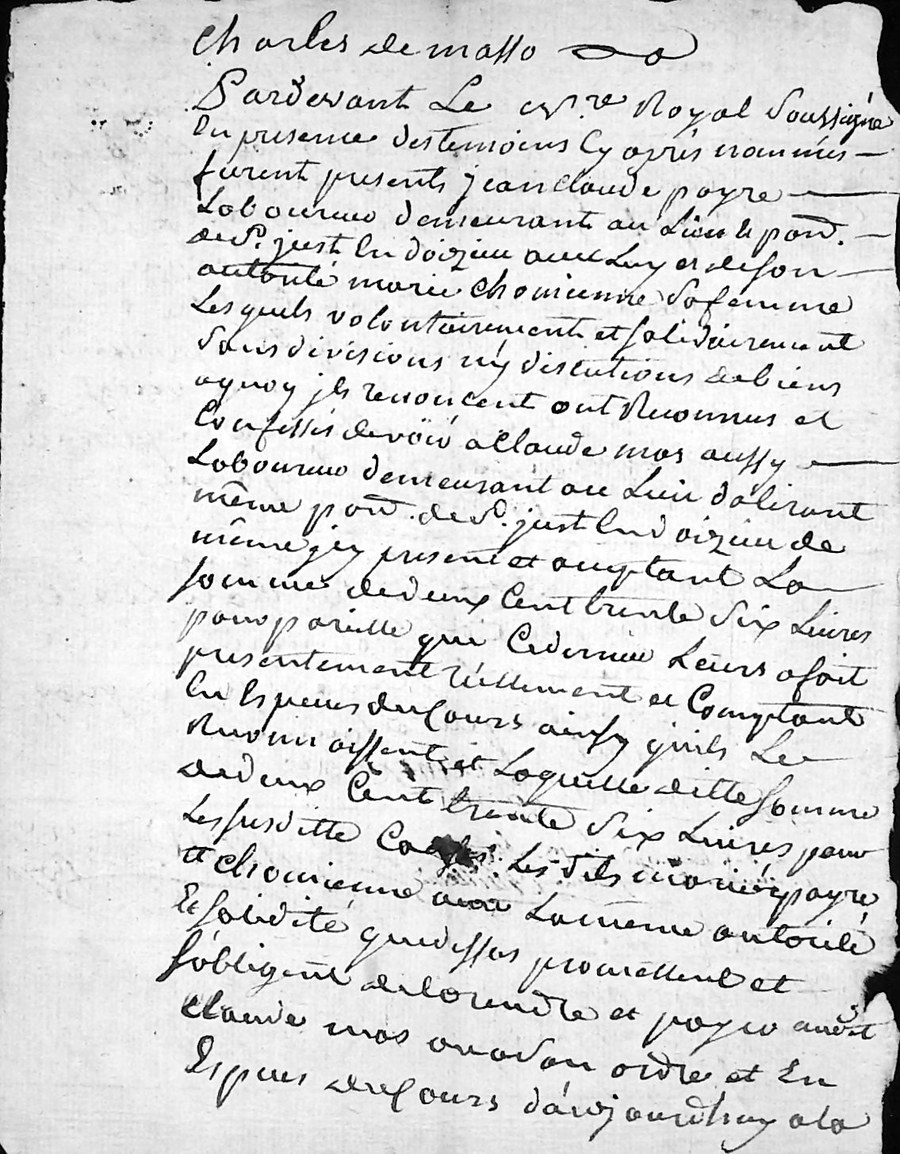 Charles de masso
Pardevant Le No.re Royal Soussigné
En presence destemoins Cy aprés nommés
furent presents jean Claude payre
Laboureur demeurant au Lieu & parr.
de St. just En doizieu avec Luy et deson
autorité marie Chomienne Safemme
Lesquels volontairement et solidairement
Sans divisions ny discutions debiens
aquoy jls renoncent ont Reconnus et
Confessés devoir a Claude mas aussy
Laboureur demeurant au Lieu
même parr. de St. just En doizieu de
même jcy present et acceptant La
somme dedeux Cent trente Six Livres
pour pareille que Cedernier Leurs afait
presentement réellement et Comptant
En Especes duCours ainsy quils Le
Reconnoissent et Laquelle ditte somme
dedeux Cent trente Six Livres pour
Lessusditte Les dits mariés payre
et Chomienne avec Lameme autorité
Et solidité quedessus promettent et
s'obligent de rendre et payer audit
Claude mas ou a son ordre et En
Especes duCours d'aujourdhuy a la